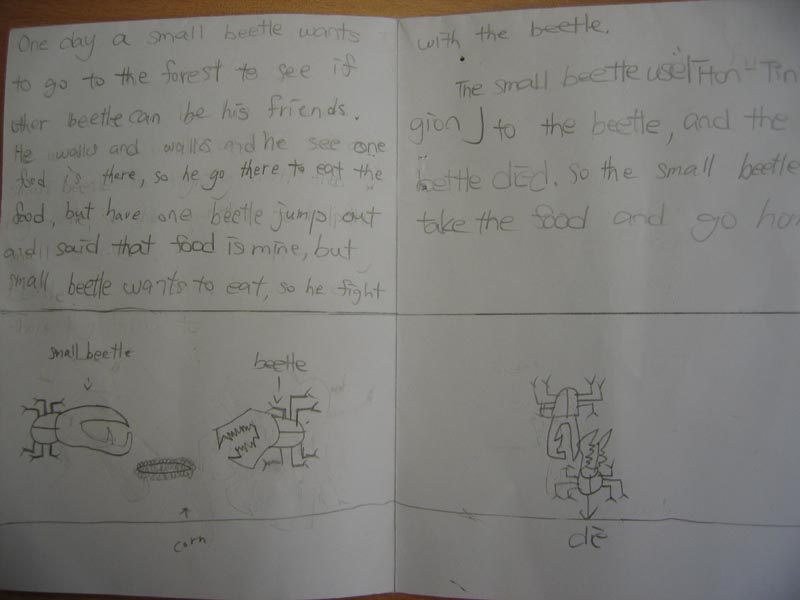 One day a small beetle wants
to go to the forest to see if
other beetle can be his friends.
He walks and walks and he see one
food is there, so he go there to eat the
food, but have one beetle jumps out
and said that food is mine, but
small beetle wants to eat, so he fight
with the beetle.
The small beetle use
gion」 to the beetle, and the
bettle died. So the small beetle
take the food and go
small beetle
beetle
corn
die